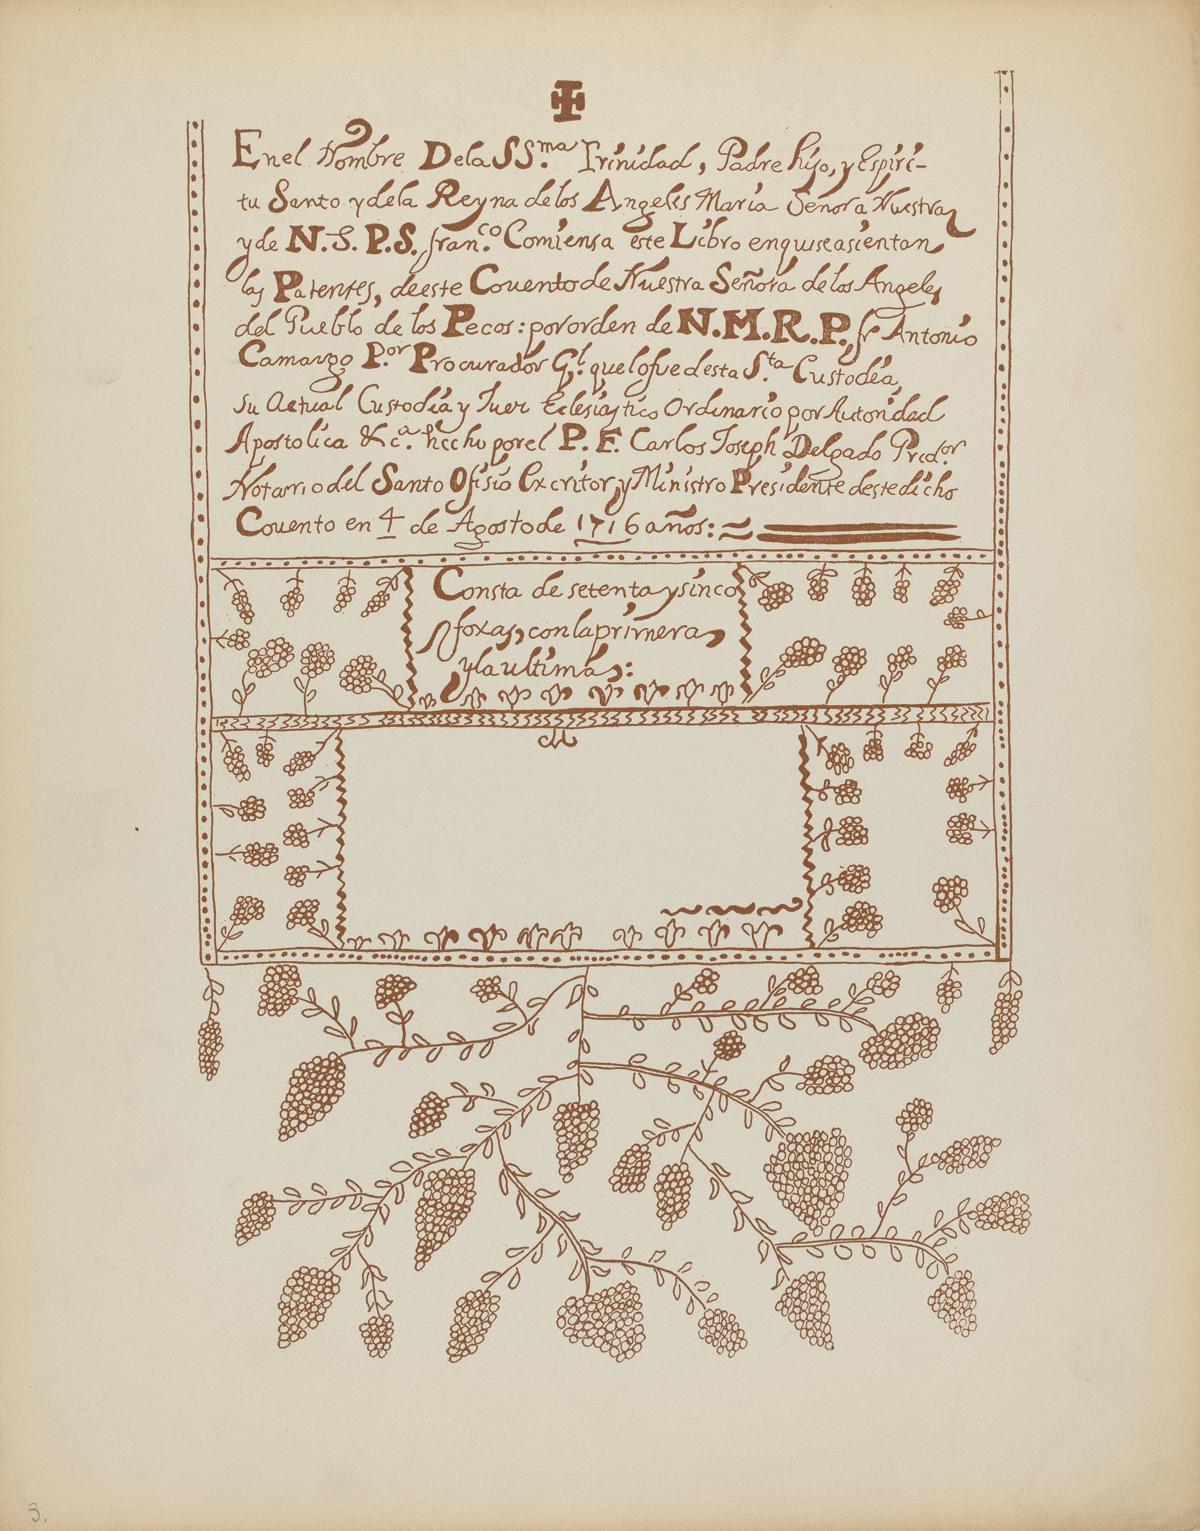 En el Nombre De la SS.ma Trinidad, Padre hijo, y Espiri-
tu Santo y dela Reyna de los Angeles Maria Señora Nuestra
y de N. S. P. S. fran.co Comiensa este Libro enquise asientan
las Patentes, de este Couento de Nuestra Señora de los Angeles
del Pueblo de los Pecos: por orden de N. M. R. P. fr Antonio
Camargo P.or Procurador G.l que lo fue desta S.ta Custodia,
su Actual Custodia y Juez Eclesiastico Ordinario por Autoridad
Apostolica &c.a hecho por el P. F. Carlos Joseph Delgado Pred.or
Notario del Santo Ofisio Excritor, y Ministro Presidente deste dicho
Couento en 4 de Agosto de 1716 años:
Consta de setenta y sinco
foxas, con la primera
y la ultima:
3.